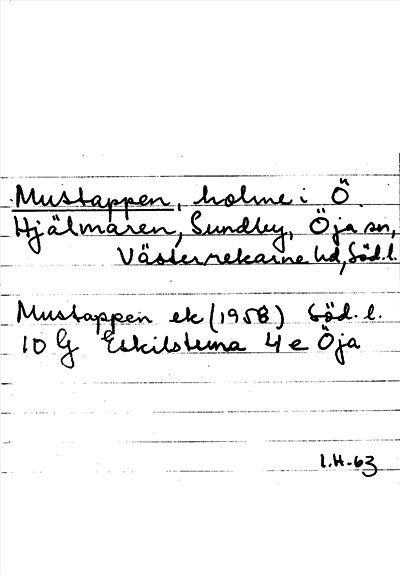 Mustappen, holme i Ö.
Hjälmaren, Sundby, Öja sn,
Västerrekarne hd, Söd.l.
Mustappen ek (1958) Söd. l.
10 G Eskilstuna 4 e Öja
I.H-63